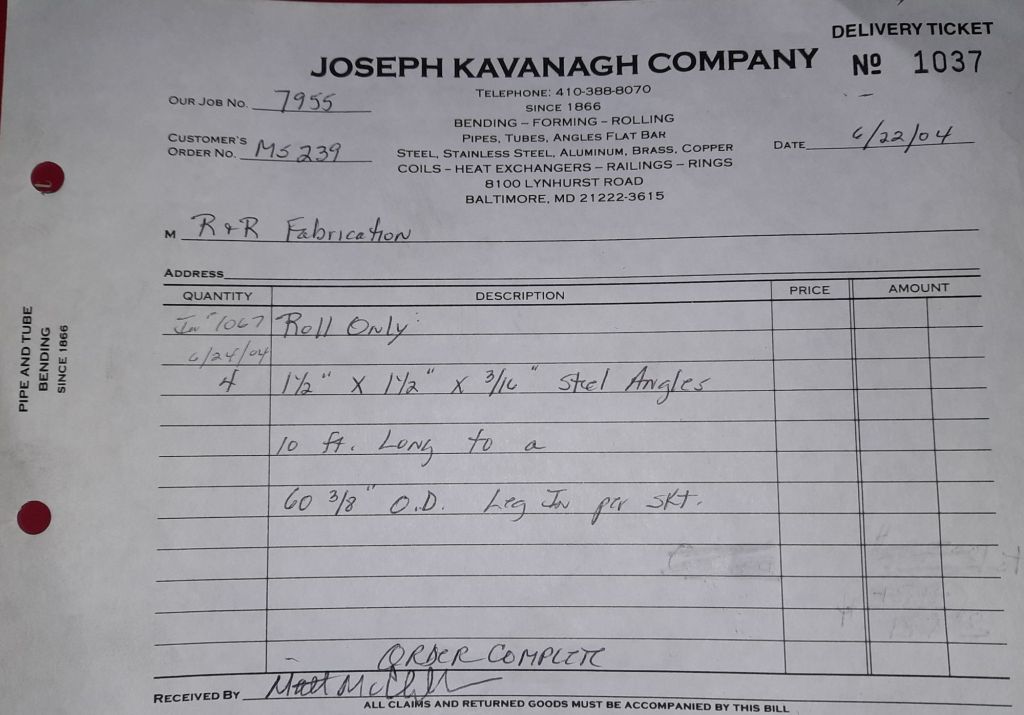 DELIVERY TICKET
JOSEPH KAVANAGH COMPANY
Nº 1037
TELEPHONE: 410-388-8070
SINCE 1866
BENDING – FORMING – ROLLING
PIPES, TUBES, ANGLES FLAT BAR
STEEL, STAINLESS STEEL, ALUMINUM, BRASS, COPPER
COILS – HEAT EXCHANGERS – RAILINGS – RINGS
8100 LYNHURST ROAD
BALTIMORE, MD 21222-3615
OUR JOB NO. 7955
CUSTOMER'S
ORDER NO. MS 239
DATE 6/22/04
M R & R Fabrication
ADDRESS
QUANTITY DESCRIPTION PRICE AMOUNT
Inv # 1067 Roll Only:
6/24/04
4 1 1/2" X 1 1/2" X 3/16" Steel Angles
10 ft. Long to a
60 3/8" O.D. Leg In per skt.
ORDER COMPLETE
RECEIVED BY Matt
ALL CLAIMS AND RETURNED GOODS MUST BE ACCOMPANIED BY THIS BILL
PIPE AND TUBE
BENDING
SINCE 1866